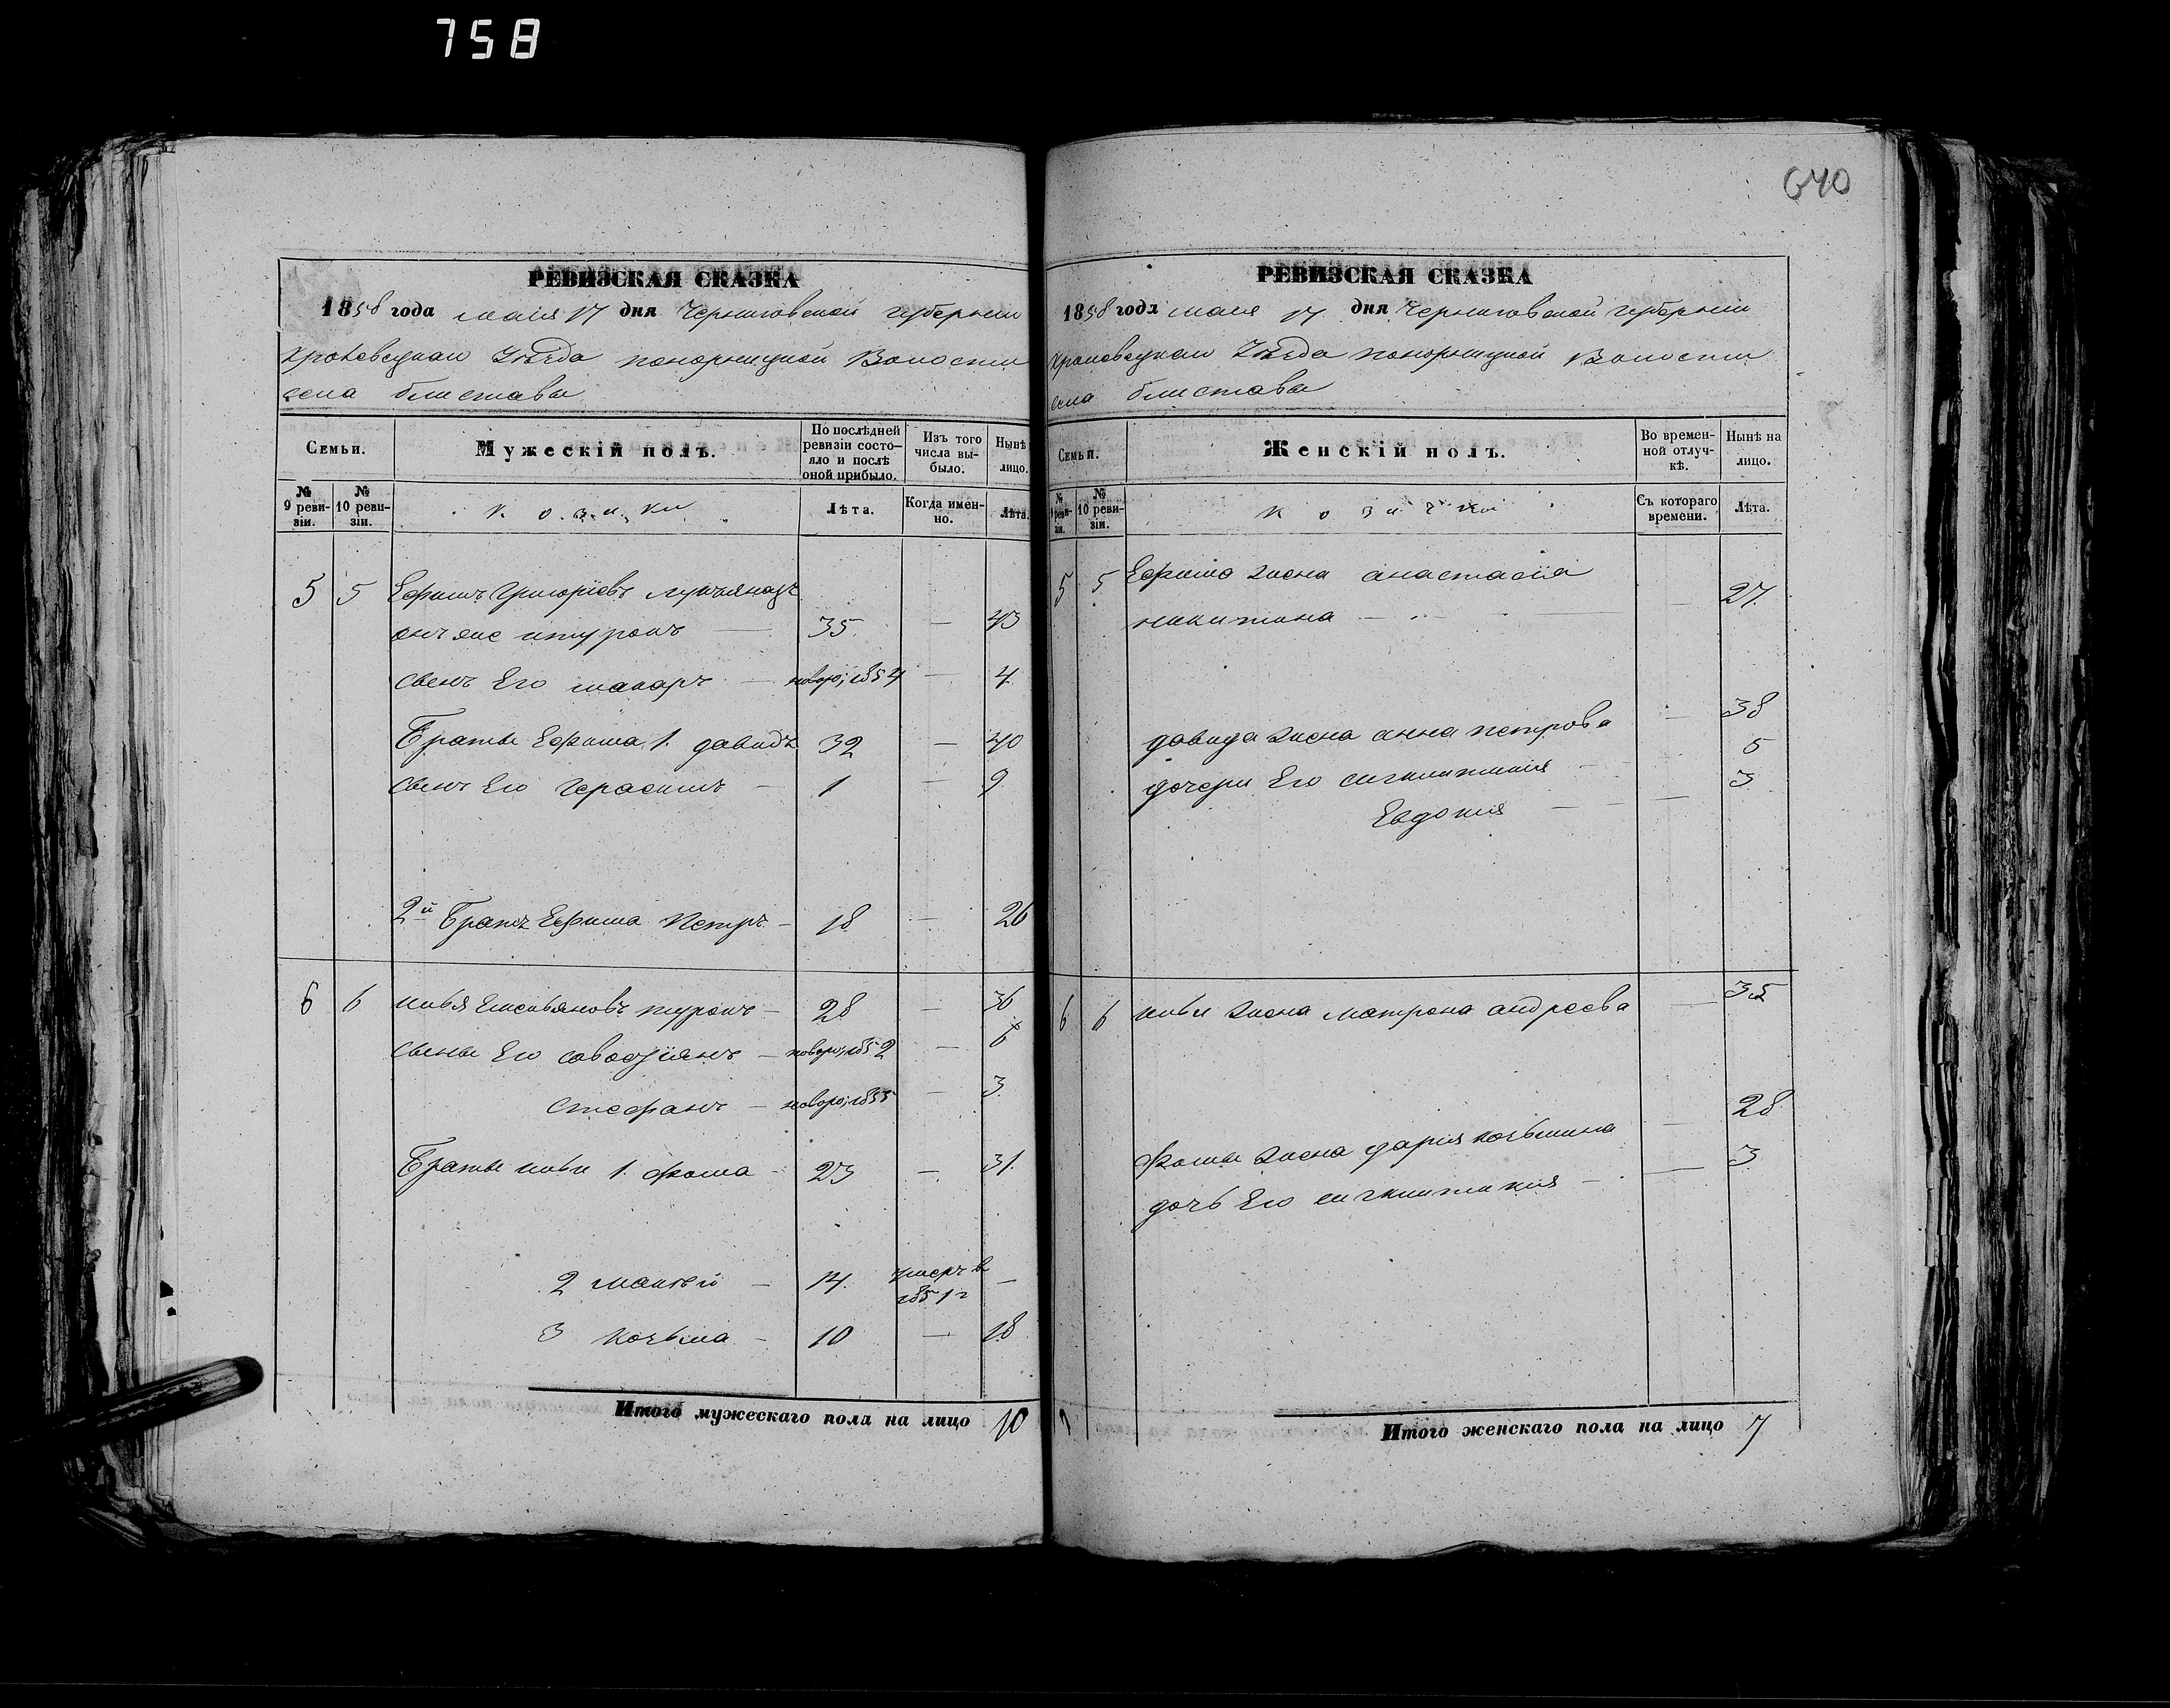 758
640
РЕВИЗСКАЯ СКАЗКА
1858 года маія 17 дня Черниговской губерніи
Кролевецкаго Уѣзда Понорницкой Волости
села блистовы
Семьи.
Мужескій полъ.
По послѣдней ревизіи состо-
яло и послѣ
оной прибыло.
Изъ того
числа вы-
было.
Нынѣ
лицо.
№
9 реви-
зіи.
№
10 реви-
зіи.
козаки
Лѣта.
Когда имен-
но.
Лѣта.
5 5 Ефимъ Григоріевъ
онъ же туронъ — 35 — 43
сынъ Его макаръ — новоро; 1854 — 4
Братья Ефима 1. давидъ 32 — 40
сынъ Его Герасимъ — 1 — 9
2й Братъ Ефима Петръ — 18 — 26
6 6 илья Емельяновъ туронъ — 28 — 36
сыны Его — новоро; 1852 — 6
Стефанъ — новоро; 1855 — 3
Братья ильи 1. фома — 23 — 31.
2 матвѣй — 14. умеръ в —
1851 г
3 козьма — 10 — 18
Итого мужескаго пола на лицо 10
РЕВИЗСКАЯ СКАЗКА
1858 года маія 17 дня Черниговской губерніи
Кролевецкаго Уѣзда Понорницкой Волости
села блистовы
Семьи.
Женскій полъ.
Во времен-
ной отлуч-
кѣ.
Нынѣ на
лицо.
№
9 реви-
зіи.
№
10 реви-
зіи.
козачки
Съ котораго
времени.
Лѣта.
5 5 Ефима жена анастасія
никитина — — 27.
давида жена анна петрова — 38
дочери Его — 5
Евдокия — — 3
6 6 ильи жена матрона андреева — 35
Фомы жена дария козьмина — 28
дочь Его — — 3
Итого женскаго пола на лицо 7